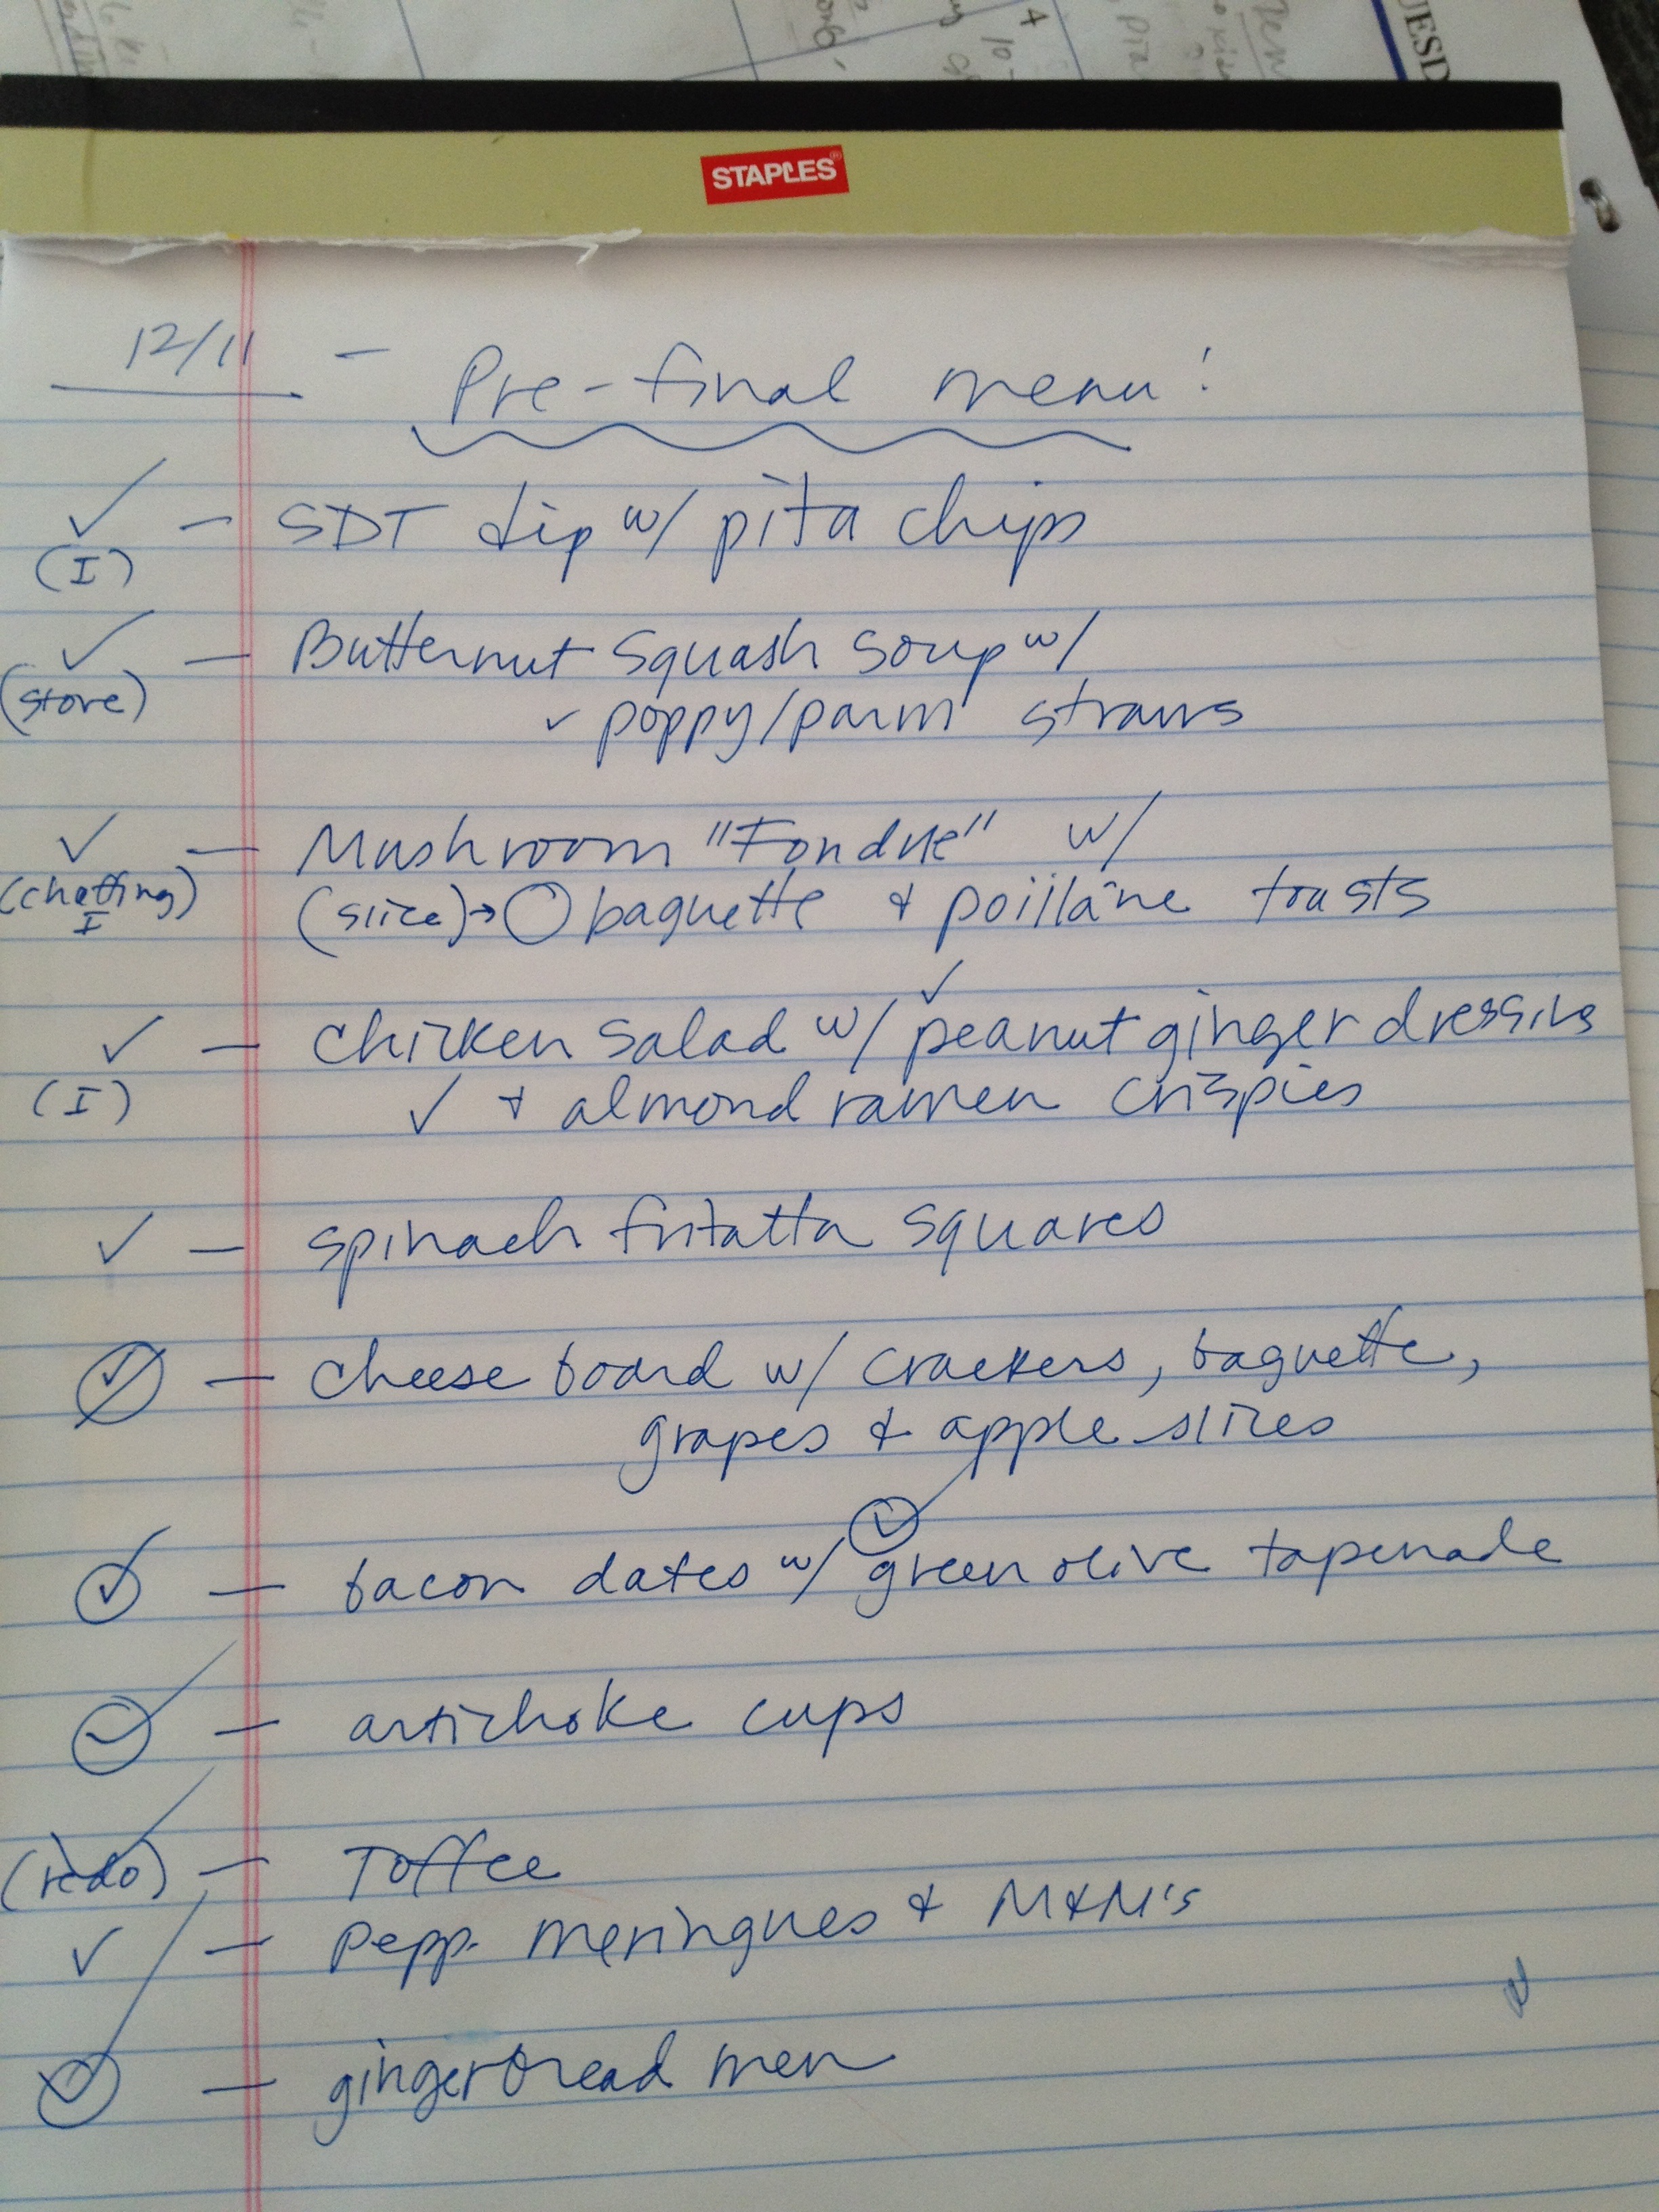 UESD
STAPLES
12/11 — Pre-final menu:
✓ — SDT dip w/ pita chips
(I)
✓ — Butternut Squash Soup w/
(store) ✓ poppy/parm straws
✓ — Mushroom "Fondue" w/
(chaffing) (slice)→ baguette & poillâne toasts
I
✓ — Chicken Salad w/ peanut ginger dressing
(I) ✓ & almond ramen crispies
✓ — Spinach fritatta squares
✓ — Cheese board w/ crackers, baguette,
grapes & apple slices
✓ — bacon dates w/ ✓ green olive tapenade
✓ — artichoke cups
(redo) — Toffee
✓ — Pepp. meringues & M&M's
✓ — gingerbread men